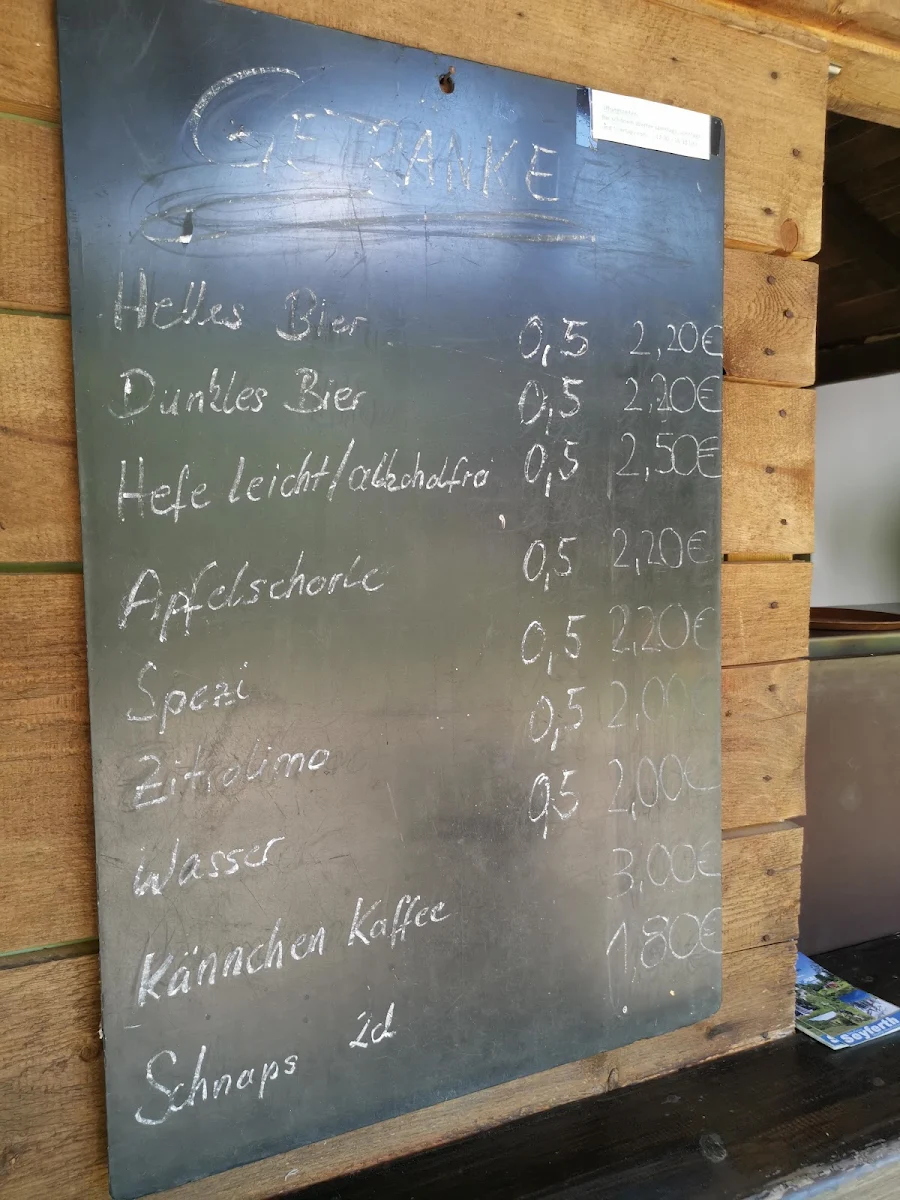 GETRÄNKE
Helles Bier 0,5 2,20€
Dunkles Bier 0,5 2,20€
Hefe leicht/alkoholfrei 0,5 2,50€
Apfelschorle 0,5 2,20€
Spezi 0,5 2,20€
Zitrolimo 0,5 2,00€
Wasser 0,5 2,00€
Kännchen Kaffee 3,00€
Schnaps 2cl 1,80€
Seyferth